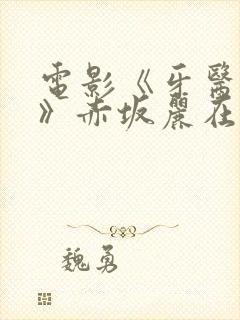 電影《牙醫
》赤坂麗在
魏勇